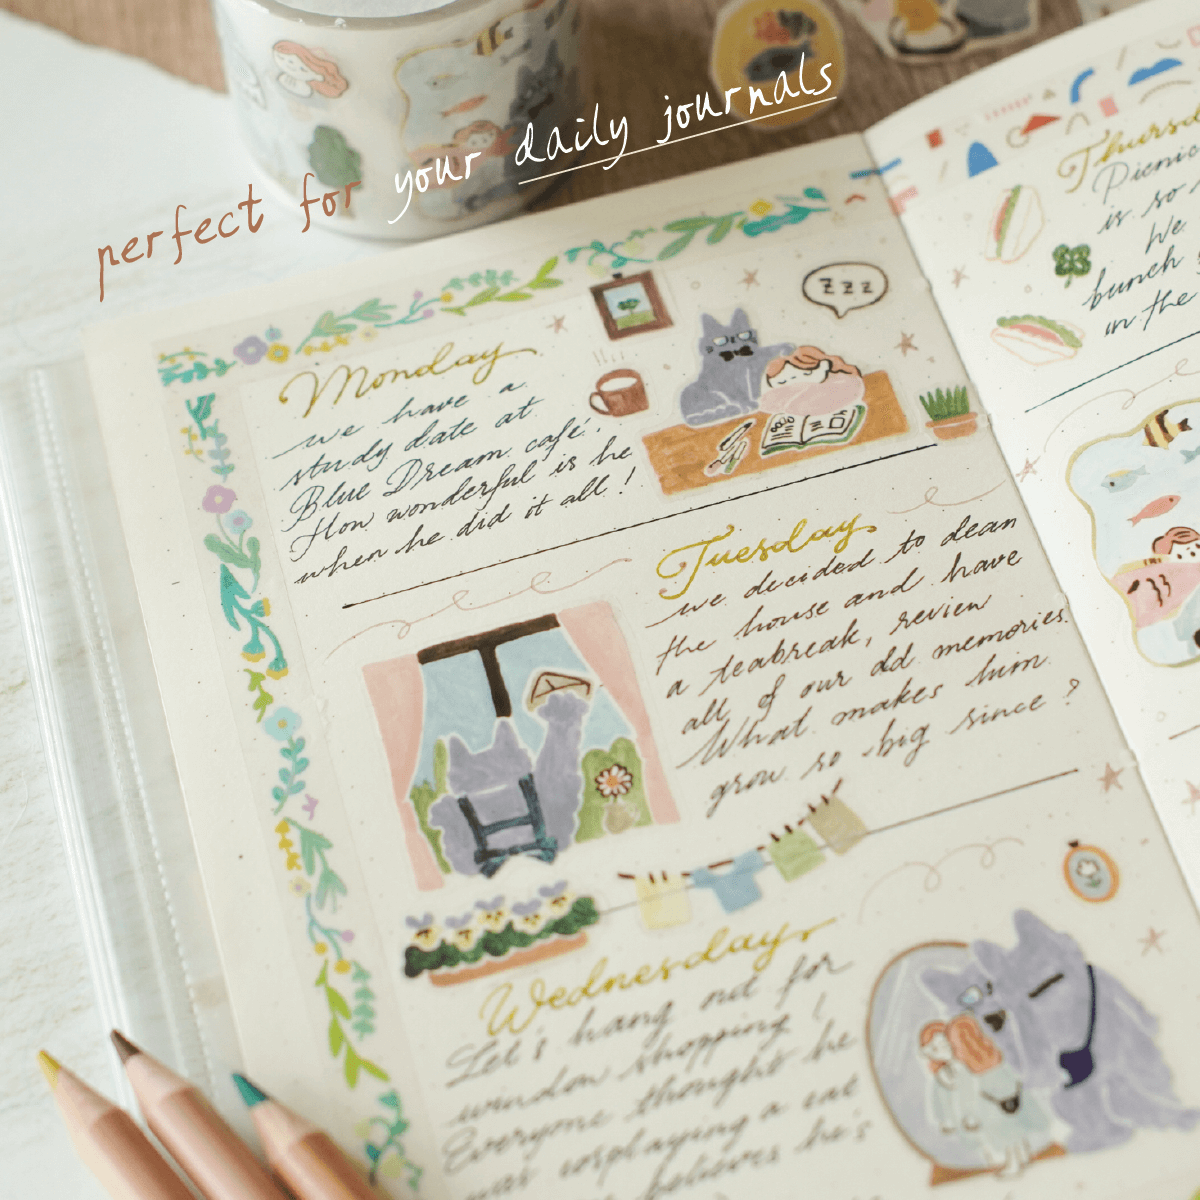 perfect for your daily journals
Monday
we have a
study date at
Blue Dream café.
How wonderful is he
when he did it all!
zzz
Tuesday
we decided to clean
the house and have
a teabreak, review
all of our old memories.
What makes him
grow so big since?
Wednesday
Let's hang out for
window shopping!
Everyone thought he
was cosplaying a cat
believes he's
Picnic
is so
We
bunch
in the